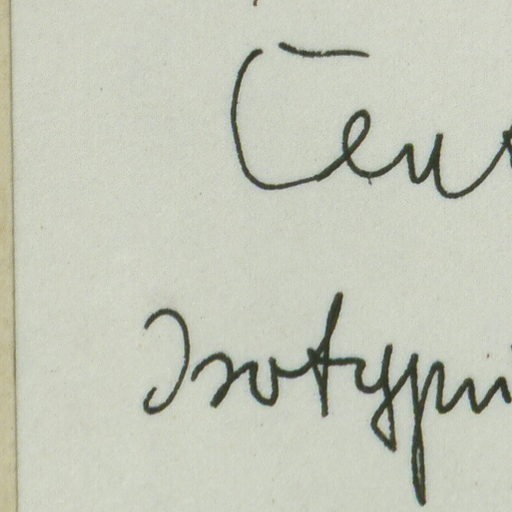 Cent
Isotypu